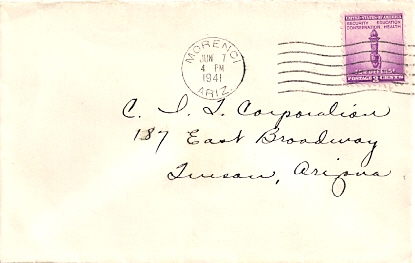 MORENCI
JUN 7
4 PM
1941
ARIZ.
UNITED STATES OF AMERICA
SECURITY EDUCATION
CONSERVATION HEALTH
POSTAGE 3 CENTS
C. I. T. Corporation
187 East Broadway
Tucson, Arizona